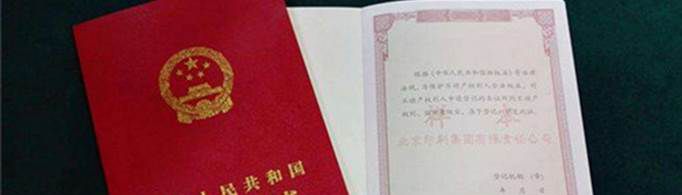 民共和国
根据《中华人民共和国物权法》等法律
法规，为保护不动产权利人合法权益，对
不动产权利人申请登记的本证所列不动产
权利，经审查核实，准予登记，颁发此证。
样本
北京印刷集团有限责任公司
登记机构（章）
年 月